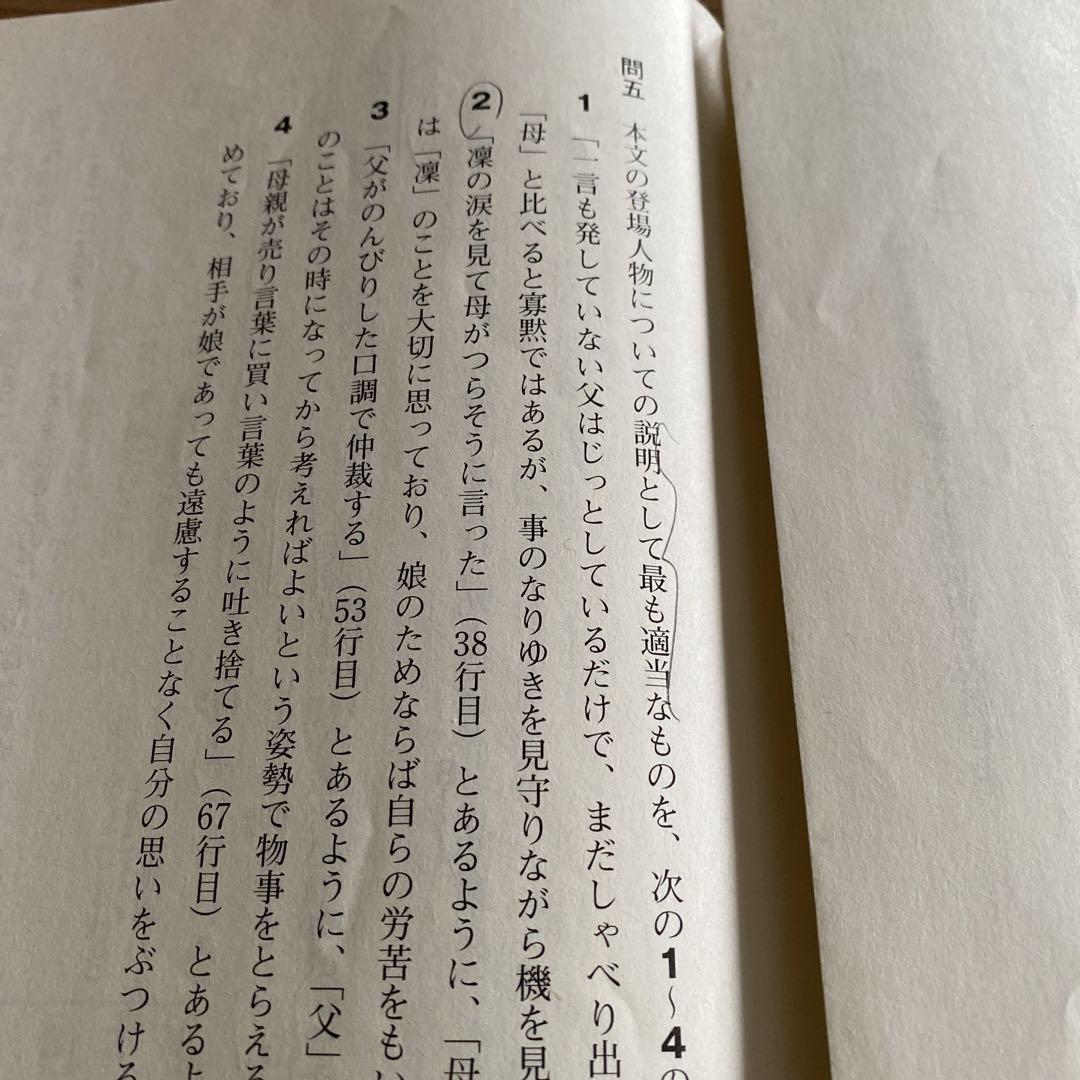 問五　本文の登場人物についての説明として最も適当なものを、次の1～4の
1　「一言も発していない父はじっとしているだけで、まだしゃべり出
「母」と比べると寡黙ではあるが、事のなりゆきを見守りながら機を見
2　「凜の涙を見て母がつらそうに言った」（38行目）とあるように、「母
は「凜」のことを大切に思っており、娘のためならば自らの労苦をもい
3　「父がのんびりした口調で仲裁する」（53行目）とあるように、「父」
のことはその時になってから考えればよいという姿勢で物事をとらえる
4　「母親が売り言葉に買い言葉のように吐き捨てる」（67行目）とあるよ
めており、相手が娘であっても遠慮することなく自分の思いをぶつける